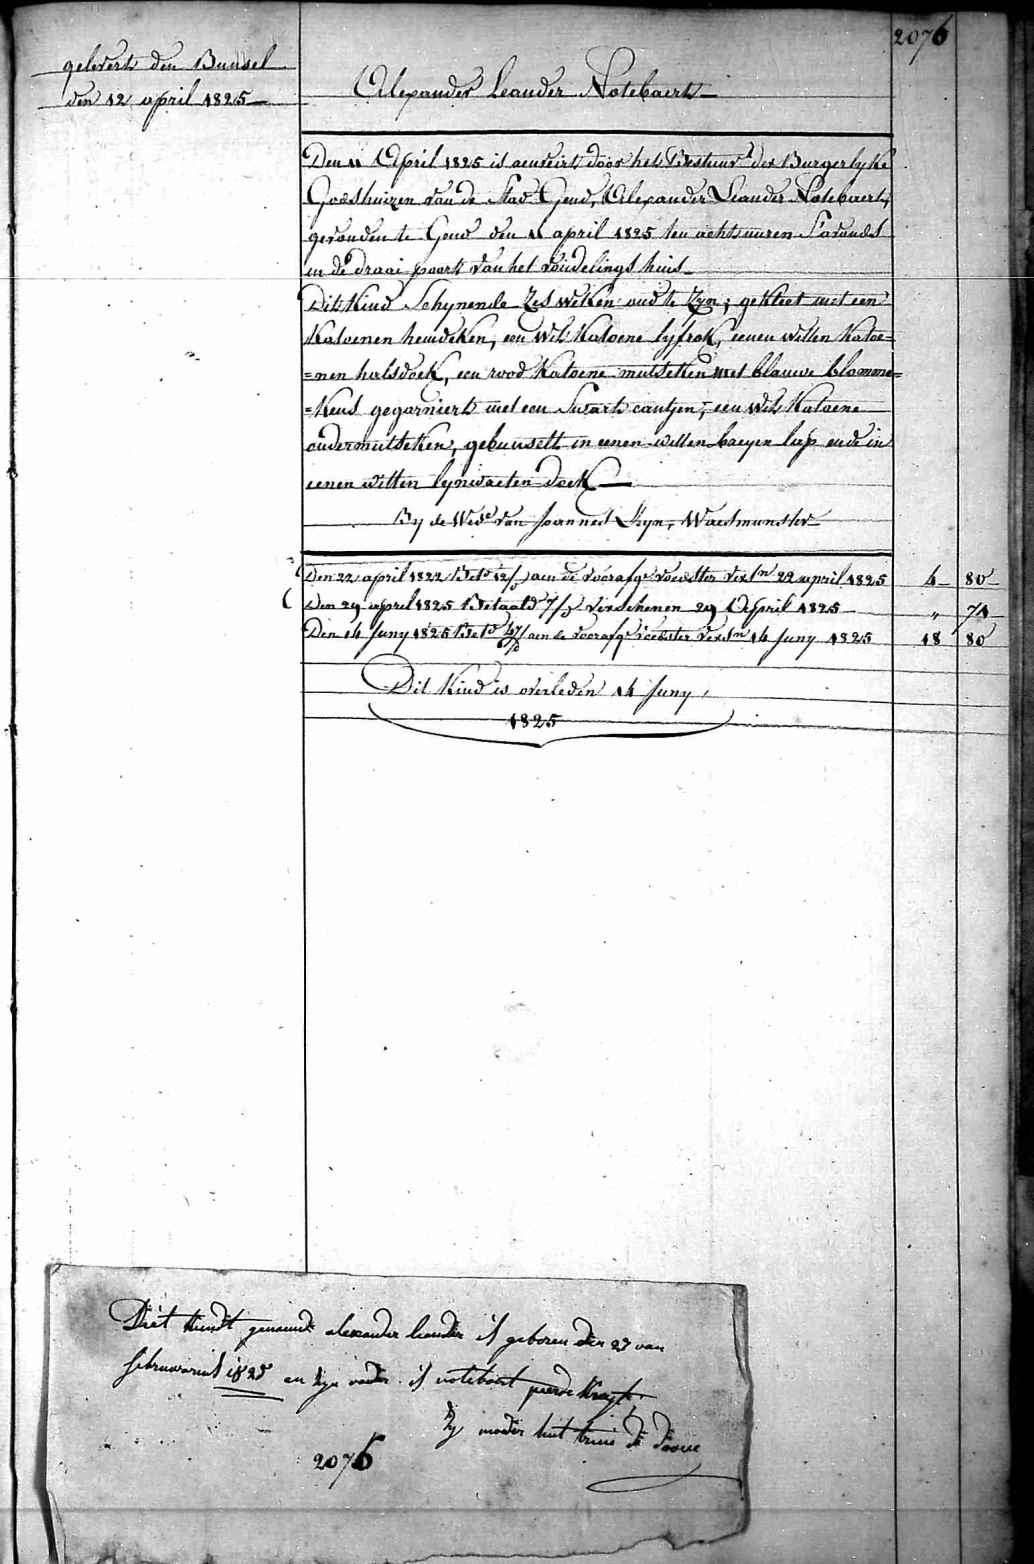 2076
gelevert den Bunsel
den 12 april 1825
Alexander Leander Notebaert
Den 11 April 1825 is aenveirt door het Bestuur der Burgerlyke
Godshuizen van de Stad Gend, Alexander Leander Notebaert,
gevonden te Gend den 11 april 1825 ten acht uuren s'avonds
in de draai poort van het vondelings huis
Dit Kind Schynende Zes weken oud te Zyn; gekleet met een
Katoenen hemdeken, een wit Katoene lyfrok, eenen witten Katoe=
=nen halsdoek, een rood Katoene mutsetken met blauwe blomme=
=Kens gegarniert met een Swart cantjen, een wit Katoene
ondermutsken, gebunselt in eenen witten baeyen lap ende in
eenen witten lynwaeten doek
By de Wede van Joannes Kyn, Waesmunster
Den 22 april 1822 Betd 12/ aen de voorafge voedster Versn 22 april 1825 4 80
Den 29 april 1825 Betaald 7/ Verschenen 29 April 1825 " 71
Den 14 Juny 1825 Betd aen de voorafge voedster Versn 14 Juny 1825 18 80
Dit Kind is overleden 14 Juny
1825
Diet Kindt genaemd alexander leander is geboren den 27 van
februwarius 1825 en zyn vader is notebaert pierre
zy moeder de
2076